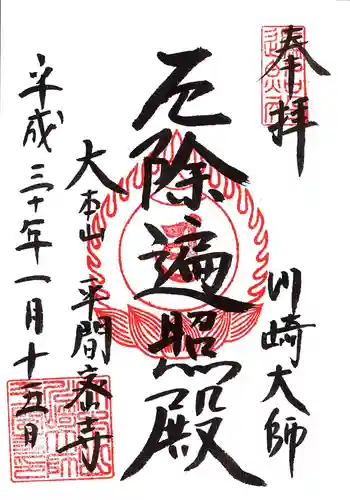 奉拝
川崎大師
厄除遍照殿
大本山 平間寺
平成三十年一月十五日